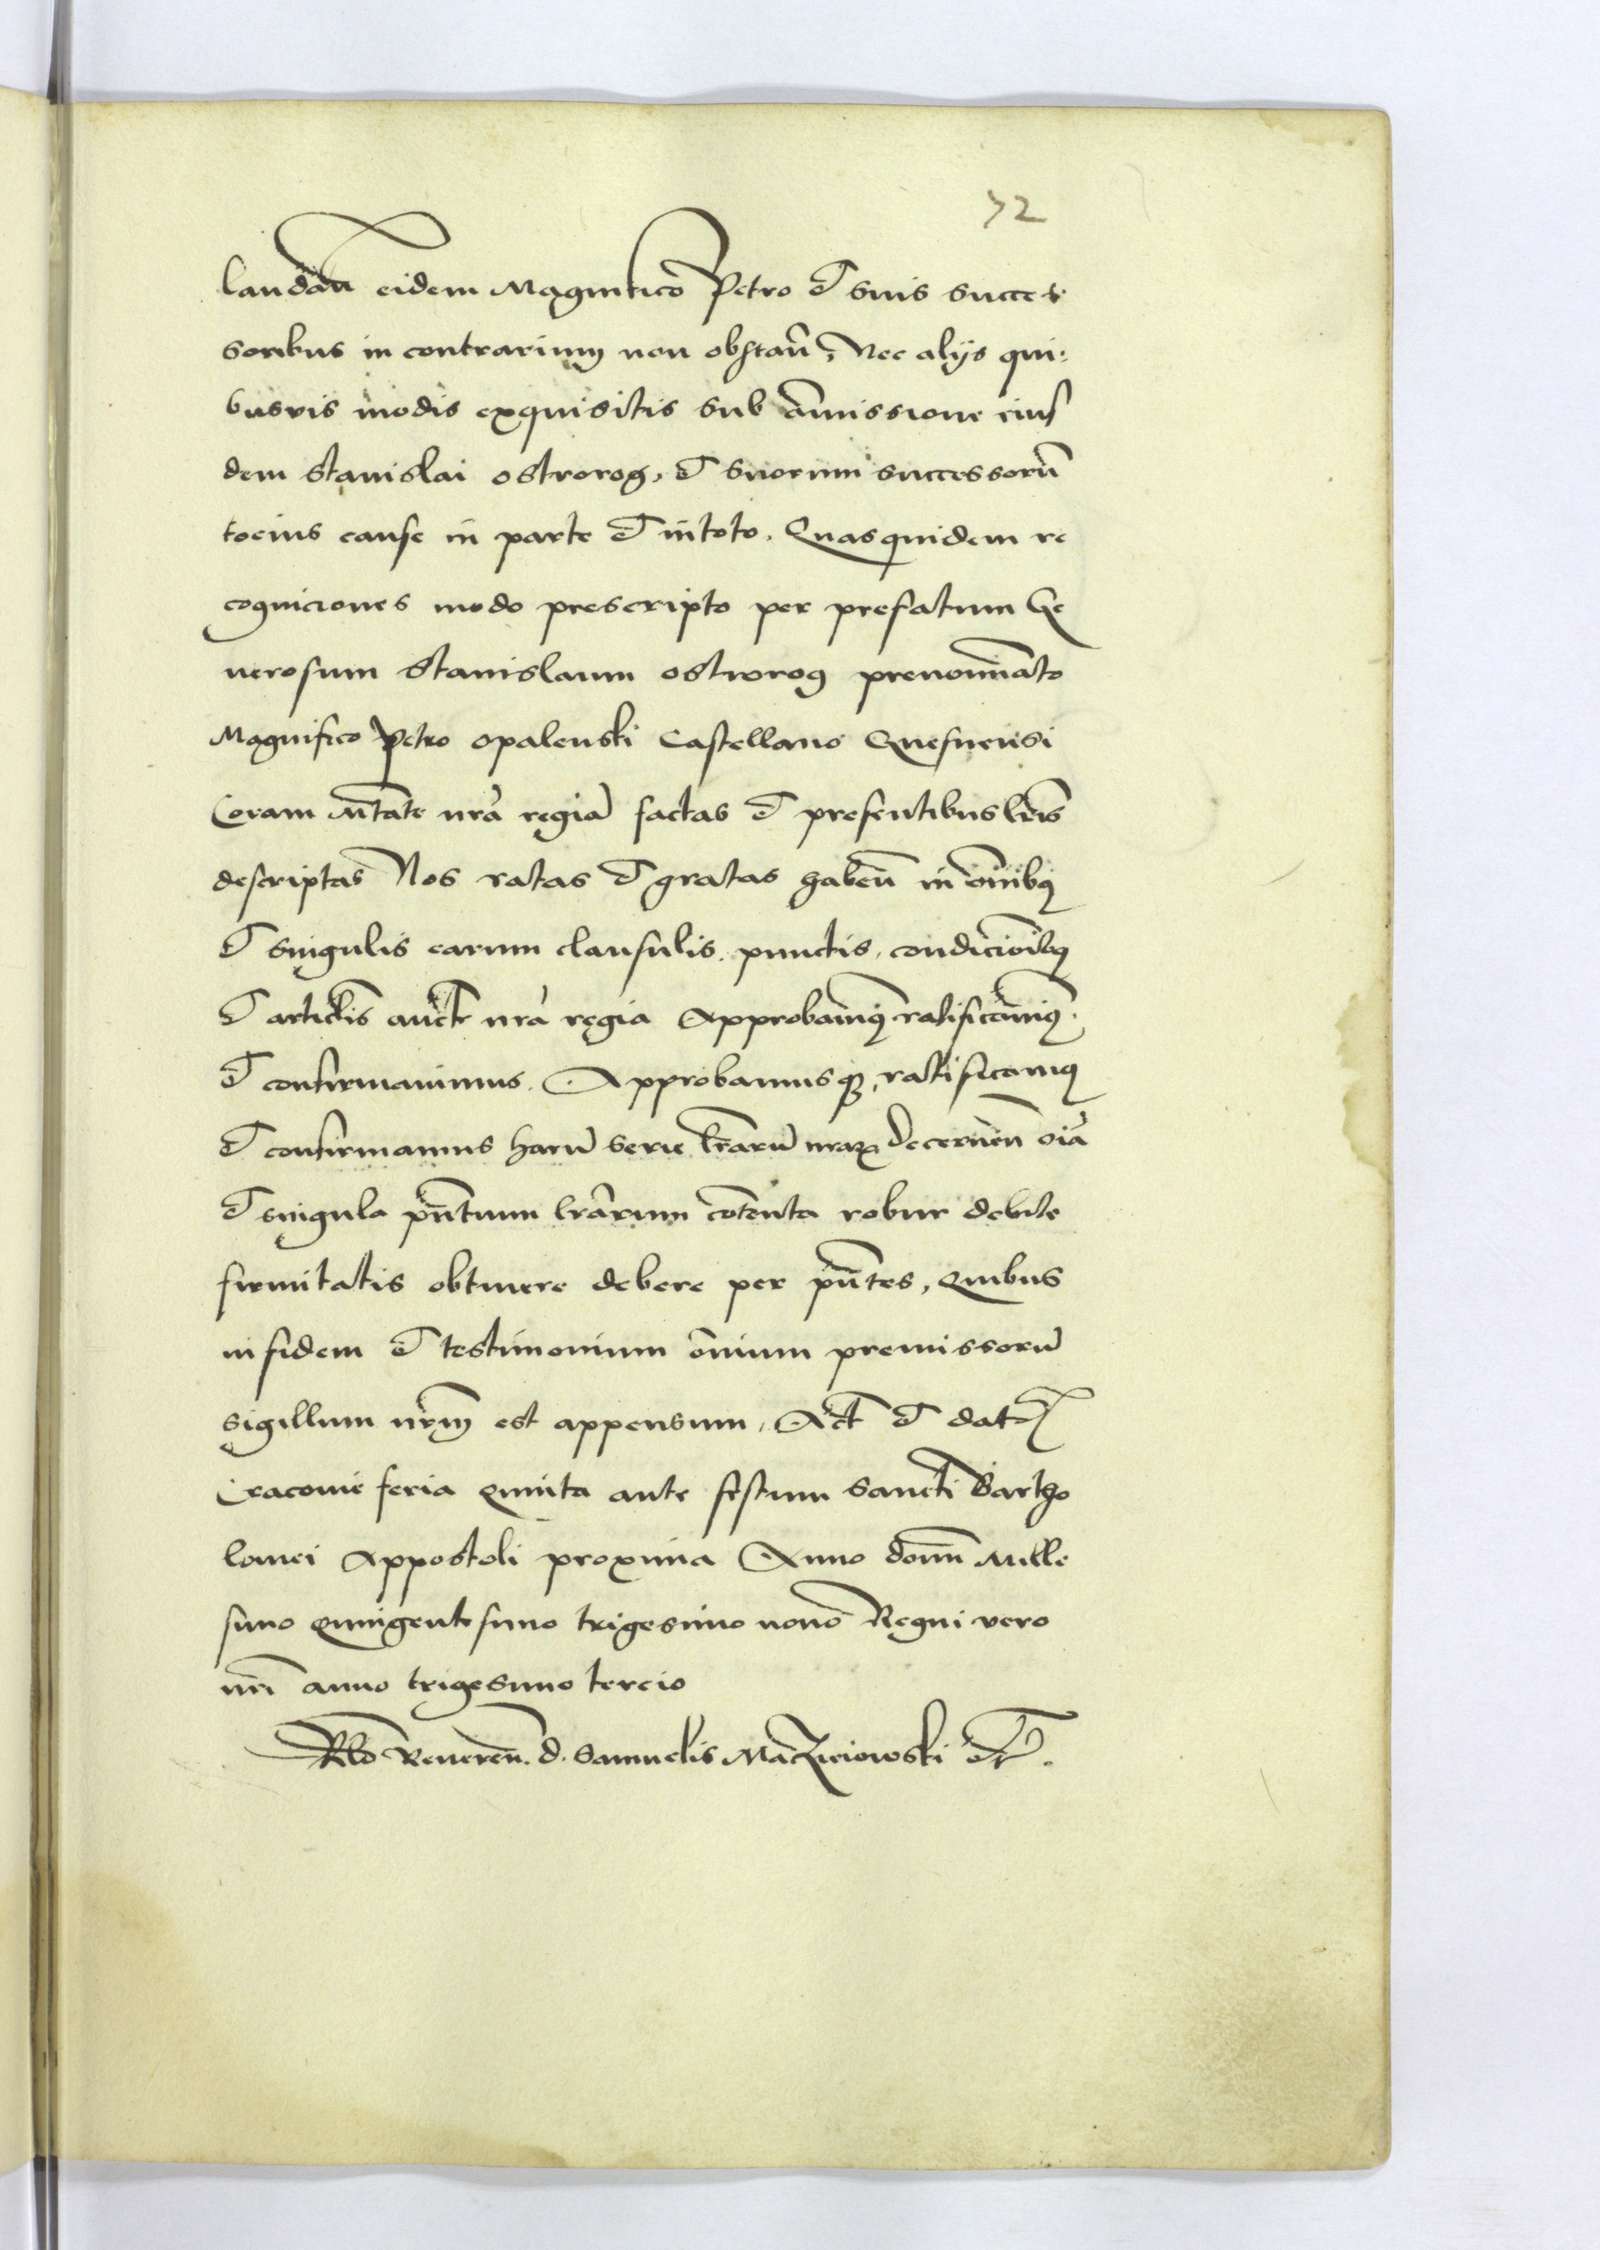 72
laudan̄ eidem Magnifico Petro et suis succes
soribus in contrarium non obstan̄, Nec alijs qui
busvis modis exquisitis sub āmissione eius
dem Stanislai ostrorog, et suorum successorū
tocius cause in parte et in toto. Quasquidem re
cogniciones modo prescripto per prefatum Ge
nerosum Stanislaum ostrorog prenomīato
Magnifico Petro opalenski Castellano Gnesnensi
Coram M̄tate nr̄a regia factas et presentibus lr̄is
descriptas Nos ratas et gratas haben̄ in om̄ibꝫ
et singulis earum clausulis, punctis, condicōibꝫ
et articlīs auctē nr̄a regia Approbauimꝰ ratificauimꝰ,
et confirmauimus. Approbamusqꝫ, ratificamꝰ
et confirmamus harū serie lr̄arū nr̄arꝝ decernen̄ oīa
et singula pn̄tium lr̄arum cōtenta robur debite
firmitatis obtinere debere per pn̄tes, Quibus
in fidem et testimonium ōnium premissorū
sigillum nr̄m est appensum, Act̄ et dat̄
Cracovie feria quinta ante festum Sancti Bartho
lomei Appostoli proxima Anno domī Mille
simo quingentesimo trigesimo nono Regni vero
nr̄i anno trigesimo tercio
Rlō Reveren̄. d. Samuelis Maczieiowski etc̄.